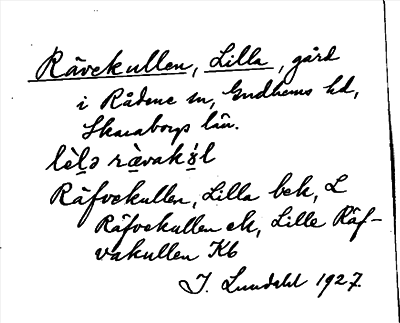 Rävekullen, Lilla, gård
i Rådene sn, Gudhems hd,
Skaraborgs län.
lèl̠ə rävakɔ̀l
Räfvekullen, Lilla bek, L
Räfvekullen ek, Lille Räf-
vakullen Kb
J. Lundahl 1927.